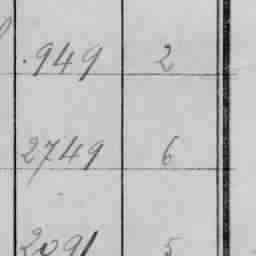 .949 2
2749 6
2091 5